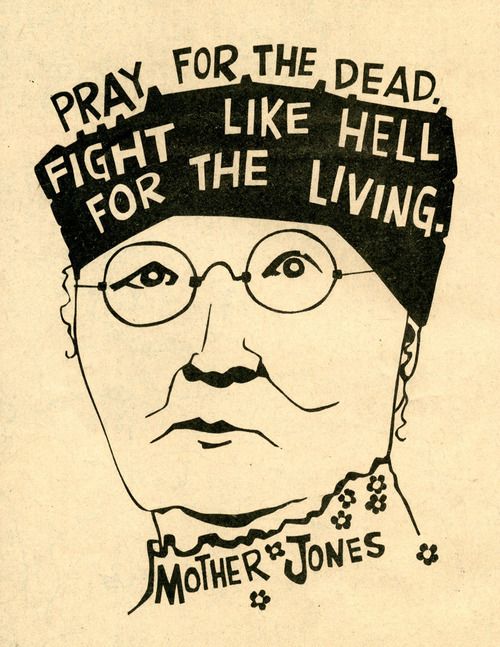 PRAY FOR THE DEAD.
FIGHT LIKE HELL
FOR THE LIVING.
MOTHER JONES